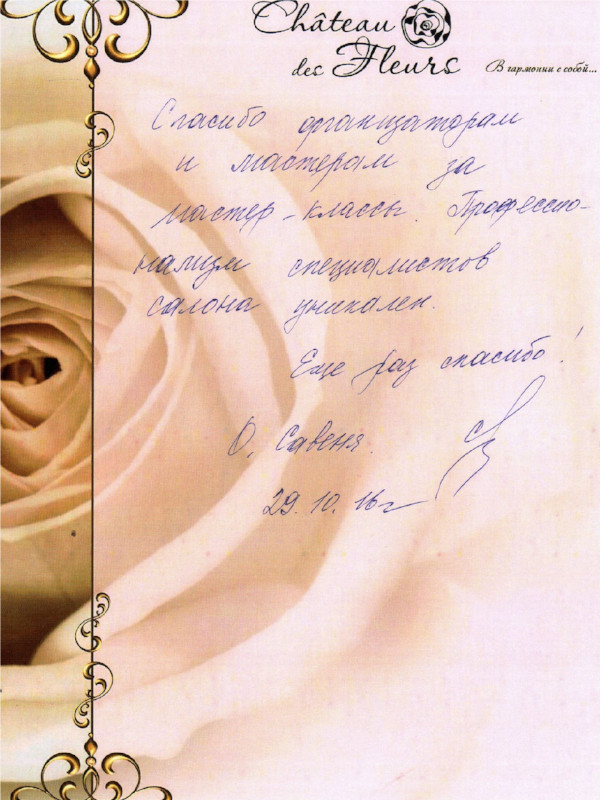 Château
des Fleurs
В гармонии с собой...
Спасибо организаторам
и мастерам за
мастер-классы. Профессио-
нализм специалистов
салона уникален.
Еще раз спасибо!
О. Савеня.
29.10.16г